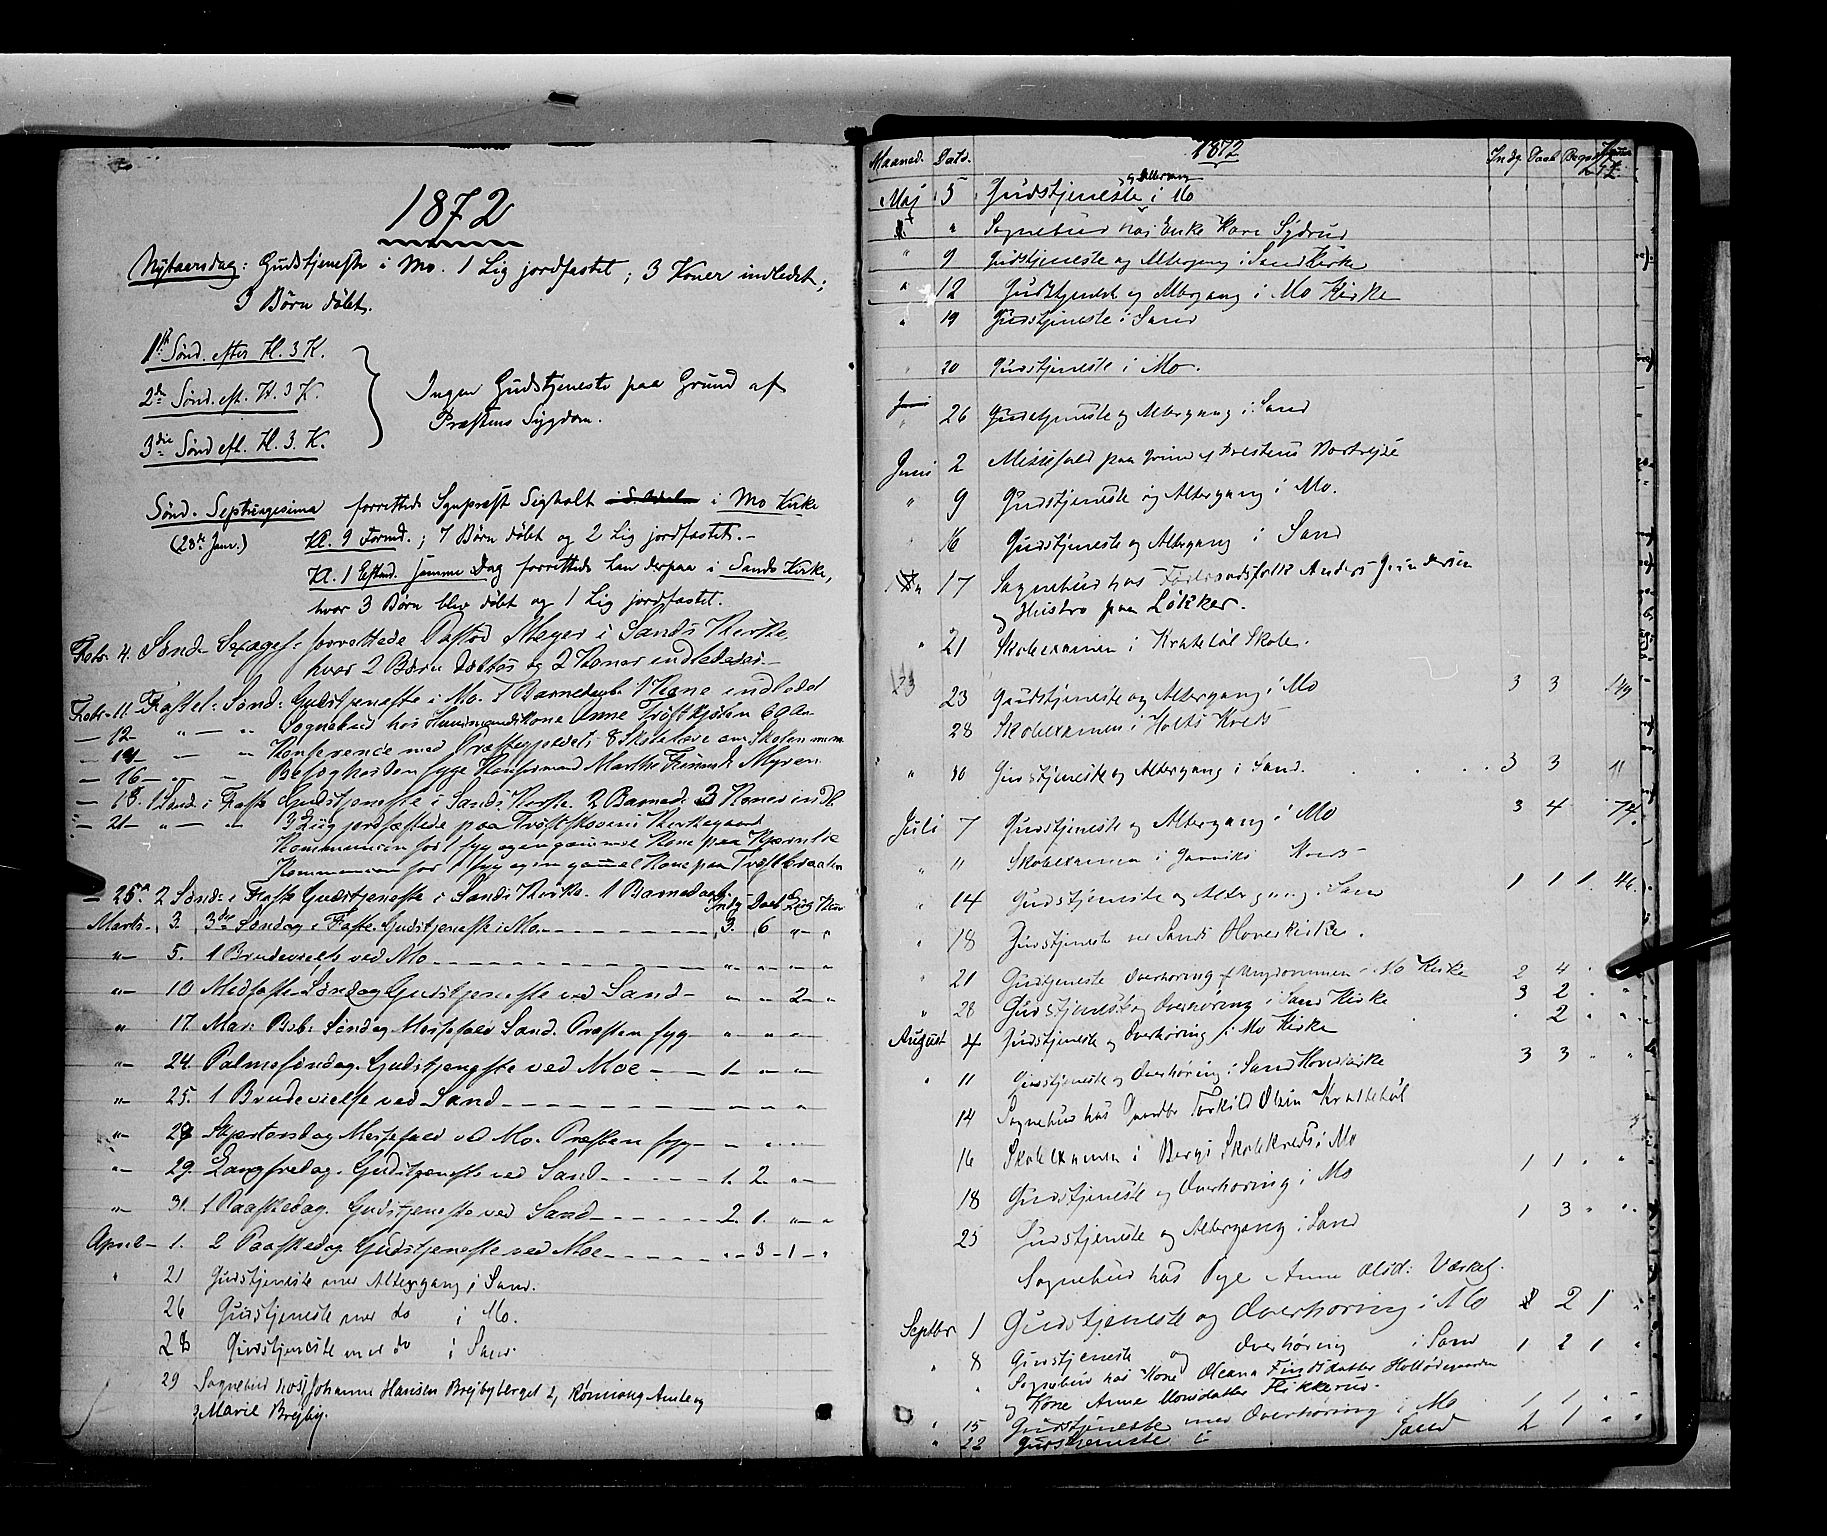 1872
Nytaarsdag: Gudstjeneste i Mo. 1 Lig jordfæstet; 3 Koner indledet;
3 Børn døbt.
1ste Sønd. efter H. 3 K.
2den Sønd. eft. H. 3 K.
3die Sønd. eft. H. 3. K.
Ingen Gudstjeneste paa Grund af
Præstens Sygdom.
Sønd. Septuagesima forrettede Sognpræst Sigholt i Mo Kirke
(28de Janr.) Kl. 9 Formd.; 7 Børn døbt og 2 Lig jordfæstet.
Kl. 1 Eftmd. samme Dag forrettede han derpaa i Sands Kirke,
hvor 3 Børn blev døbt og 1 Lig jordfæstet.
Febr. 4. Sønd. Sexages. forrettede Pastor Meyer i Sands Kirke
hvor 2 Børn døbtes og 2 Koner indlededes.
Febr. 11 Fastel. Sønd. Gudstjeneste i Mo. 1 Barnedaab 1 Kone indledet
— 12 " — " Sognebud hos Huusmandskone Anne
— 14 — " Konference med Præstegjeldets 8 Skolelærere om Skolen m.m.
— 16 — " — Besøg hos den syge Konfirmand Marthe Myren
— 18. 1 Sønd. i Faste Gudstjeneste i Sands Kirke. 2 Barned. 3 Koner indl.
— 21 — " — " 3 Liig jordfæstede paa Kirkegaard
Kommunion for 1 syg og en gammel Kone paa
Kommunion for 1 syg og en gammel Kone paa
— 25de 2 Sønd. i Faste Gudstjeneste i Sands Kirke. 1 Barnedaab
Indg Daab Liig
Marts 3. 3die Søndag i Faste. Gudstjeneste i Mo. 3. 6 " "
" 5. 1 Brudevielse ved Mo " " " "
" 10 Midfaste Søndag Gudstjeneste ved Sand " " 2 "
" 17. Mar: Beb: Søndag Messefald Sand. Præsten syg " " "
" 24. Palmesøndag. Gudstjeneste ved Moe 1 " "
" 25. 1 Brudevielse ved Sand
" 28 Skjærtorsdag Messefald ved Mo. Præsten syg
" 29. Langfredag. Gudstjeneste ved Sand 1. 2. "
" 31. 1 Paaskedag. Gudstjeneste ved Sand 2. 1. " "
April 1. 2 Paaskedag Gudstjeneste ved Moe " 3 1 "
" 21 Gudstjeneste med Altergang i Sand.
26 Gudstjeneste med do i Mo.
28 Gudstjeneste med do i Sand.
29 Sognebud hos Johanne Hansen Brejbyberget
Marie Brejby.
Maaned. Dato. 1872 Indg Daab Begr
og Altergang
Maj 5 Gudstjeneste i Mo
" Sognebud hos Enke Kari Sydrud
" 9 Gudstjeneste og Altergang i Sand Kirke
" 12 Gudstjeneste og Altergang i Mo Kirke
" 19 Gudstjeneste i Sand
" 20 Gudstjeneste i Mo.
" 26 Gudstjeneste og Altergang i Sand
Juni 2 Messefald paa Grund af Præstens Bortrejse
" 9 Gudstjeneste og Altergang i Mo.
16 Gudstjeneste og Altergang i Sand
17 Sognebud hos Føderaadsfolk Anders Gundersen
og Hustro paa Løkker.
" 21 Skoleexamen i Kratebøl Skole.
23 Gudstjeneste og Altergang i Mo 3 3 149
28 Skoleexamen i Holts Kreds
" 30 Gudstjeneste og Altergang i Sand. 3 3 11
Juli 7 Gudstjeneste og Altergang i Mo 3 4 74.
" 11 Skoleexamen i Kreds
" 14 Gudstjeneste og Altergang i Sand 1 1 1. 46.
" 18 Gudstjeneste ved Sands Hovedkirke.
" 21 Gudstjeneste Overhøring af Ungdommen i Mo Kirke 2 4 "
" 28 Gudstjeneste og Overhøring i Sand Kirke 3 2 " "
August 4 Gudstjeneste og Overhøring i Mo Kirke 2 "
" 11 Gudstjeneste og Overhøring i Sand Hovedkirke 3 3 " "
14 Sognebud hos Torkild Olsen Krattebøl
16 Skoleexamen i Bergs Skolekreds i Mo
18 Gudstjeneste og Overhøring i Mo 1 1 " "
25 Gudstjeneste og Altergang i Sand 1 3 " "
Sognebud hos Pige Anne
Septbr 1 Gudstjeneste og Overhøring i Mo 2 1 "
" 8 Gudstjeneste og Overhøring i Sand 1 2 1 "
" Sognebud hos Kone Oleana Findsdatter
og Kone Anne Monsdatter Flikkerud.
" 15 Gudstjeneste med Overhøring i Mo 1 1 " "
" 22 Gudstjeneste i Sand 2 1 " "